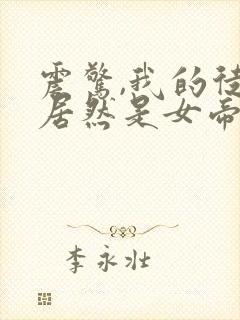 震驚,我的徒
居然是女帝
李永壮